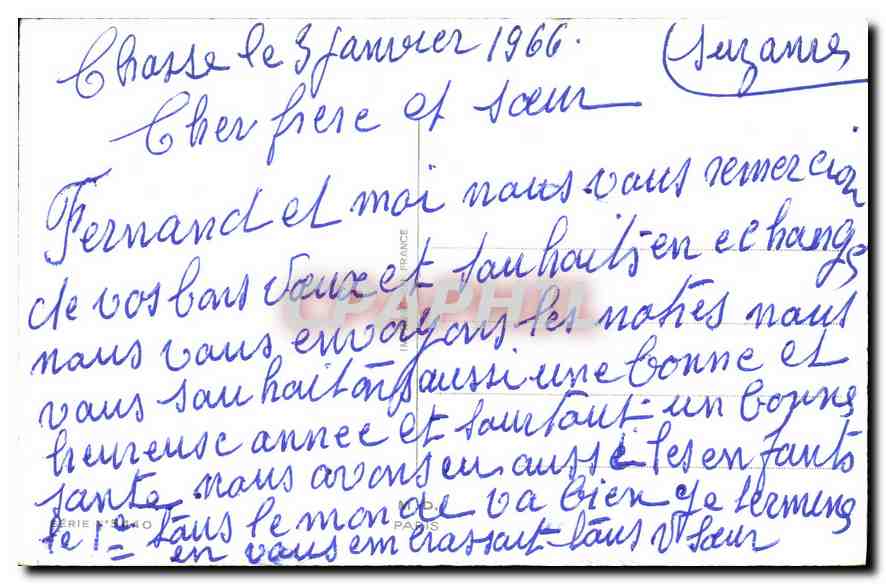 Chasse le 3 janvier 1966. Suzanne
Cher frere et sœur
Fernand et moi nous vous remercion
de vos bons vœux et souhaits en echange
nous vous envoyons les notres nous
vous souhaitons aussi une bonne et
heureuse annee et sourtout un bonne
sante nous avons eu aussi les enfants
le 1er tous le monde va bien je termine
en vous embrassant tous V sœur
IMP EN FRANCE
CPAPHIL
SÉRIE N° 5440
PARIS